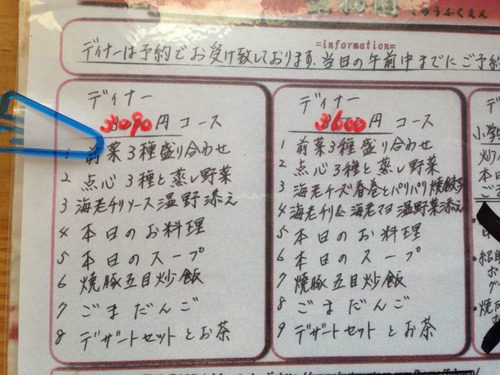 ゅうふくえん
=information=
ディナーは予約でお受け致しております。当日の午前中までにご予約
ディナー
3090円コース
1 前菜3種盛り合わせ
2 点心3種と蒸し野菜
3 海老チリソース温野添え
4 本日のお料理
5 本日のスープ
6 焼豚五目炒飯
7 ごまだんご
8 デザートセットとお茶
ディナー
3600円コース
1 前菜3種盛り合わせ
2 点心3種と蒸し野菜
3 海老チーズ春巻とパリパリ焼餃子
4 海老チリ&海老マヨ温野菜添え
5 本日のお料理
6 本日のスープ
7 焼豚五目炒飯
8 ごまだんご
9 デザートセットとお茶